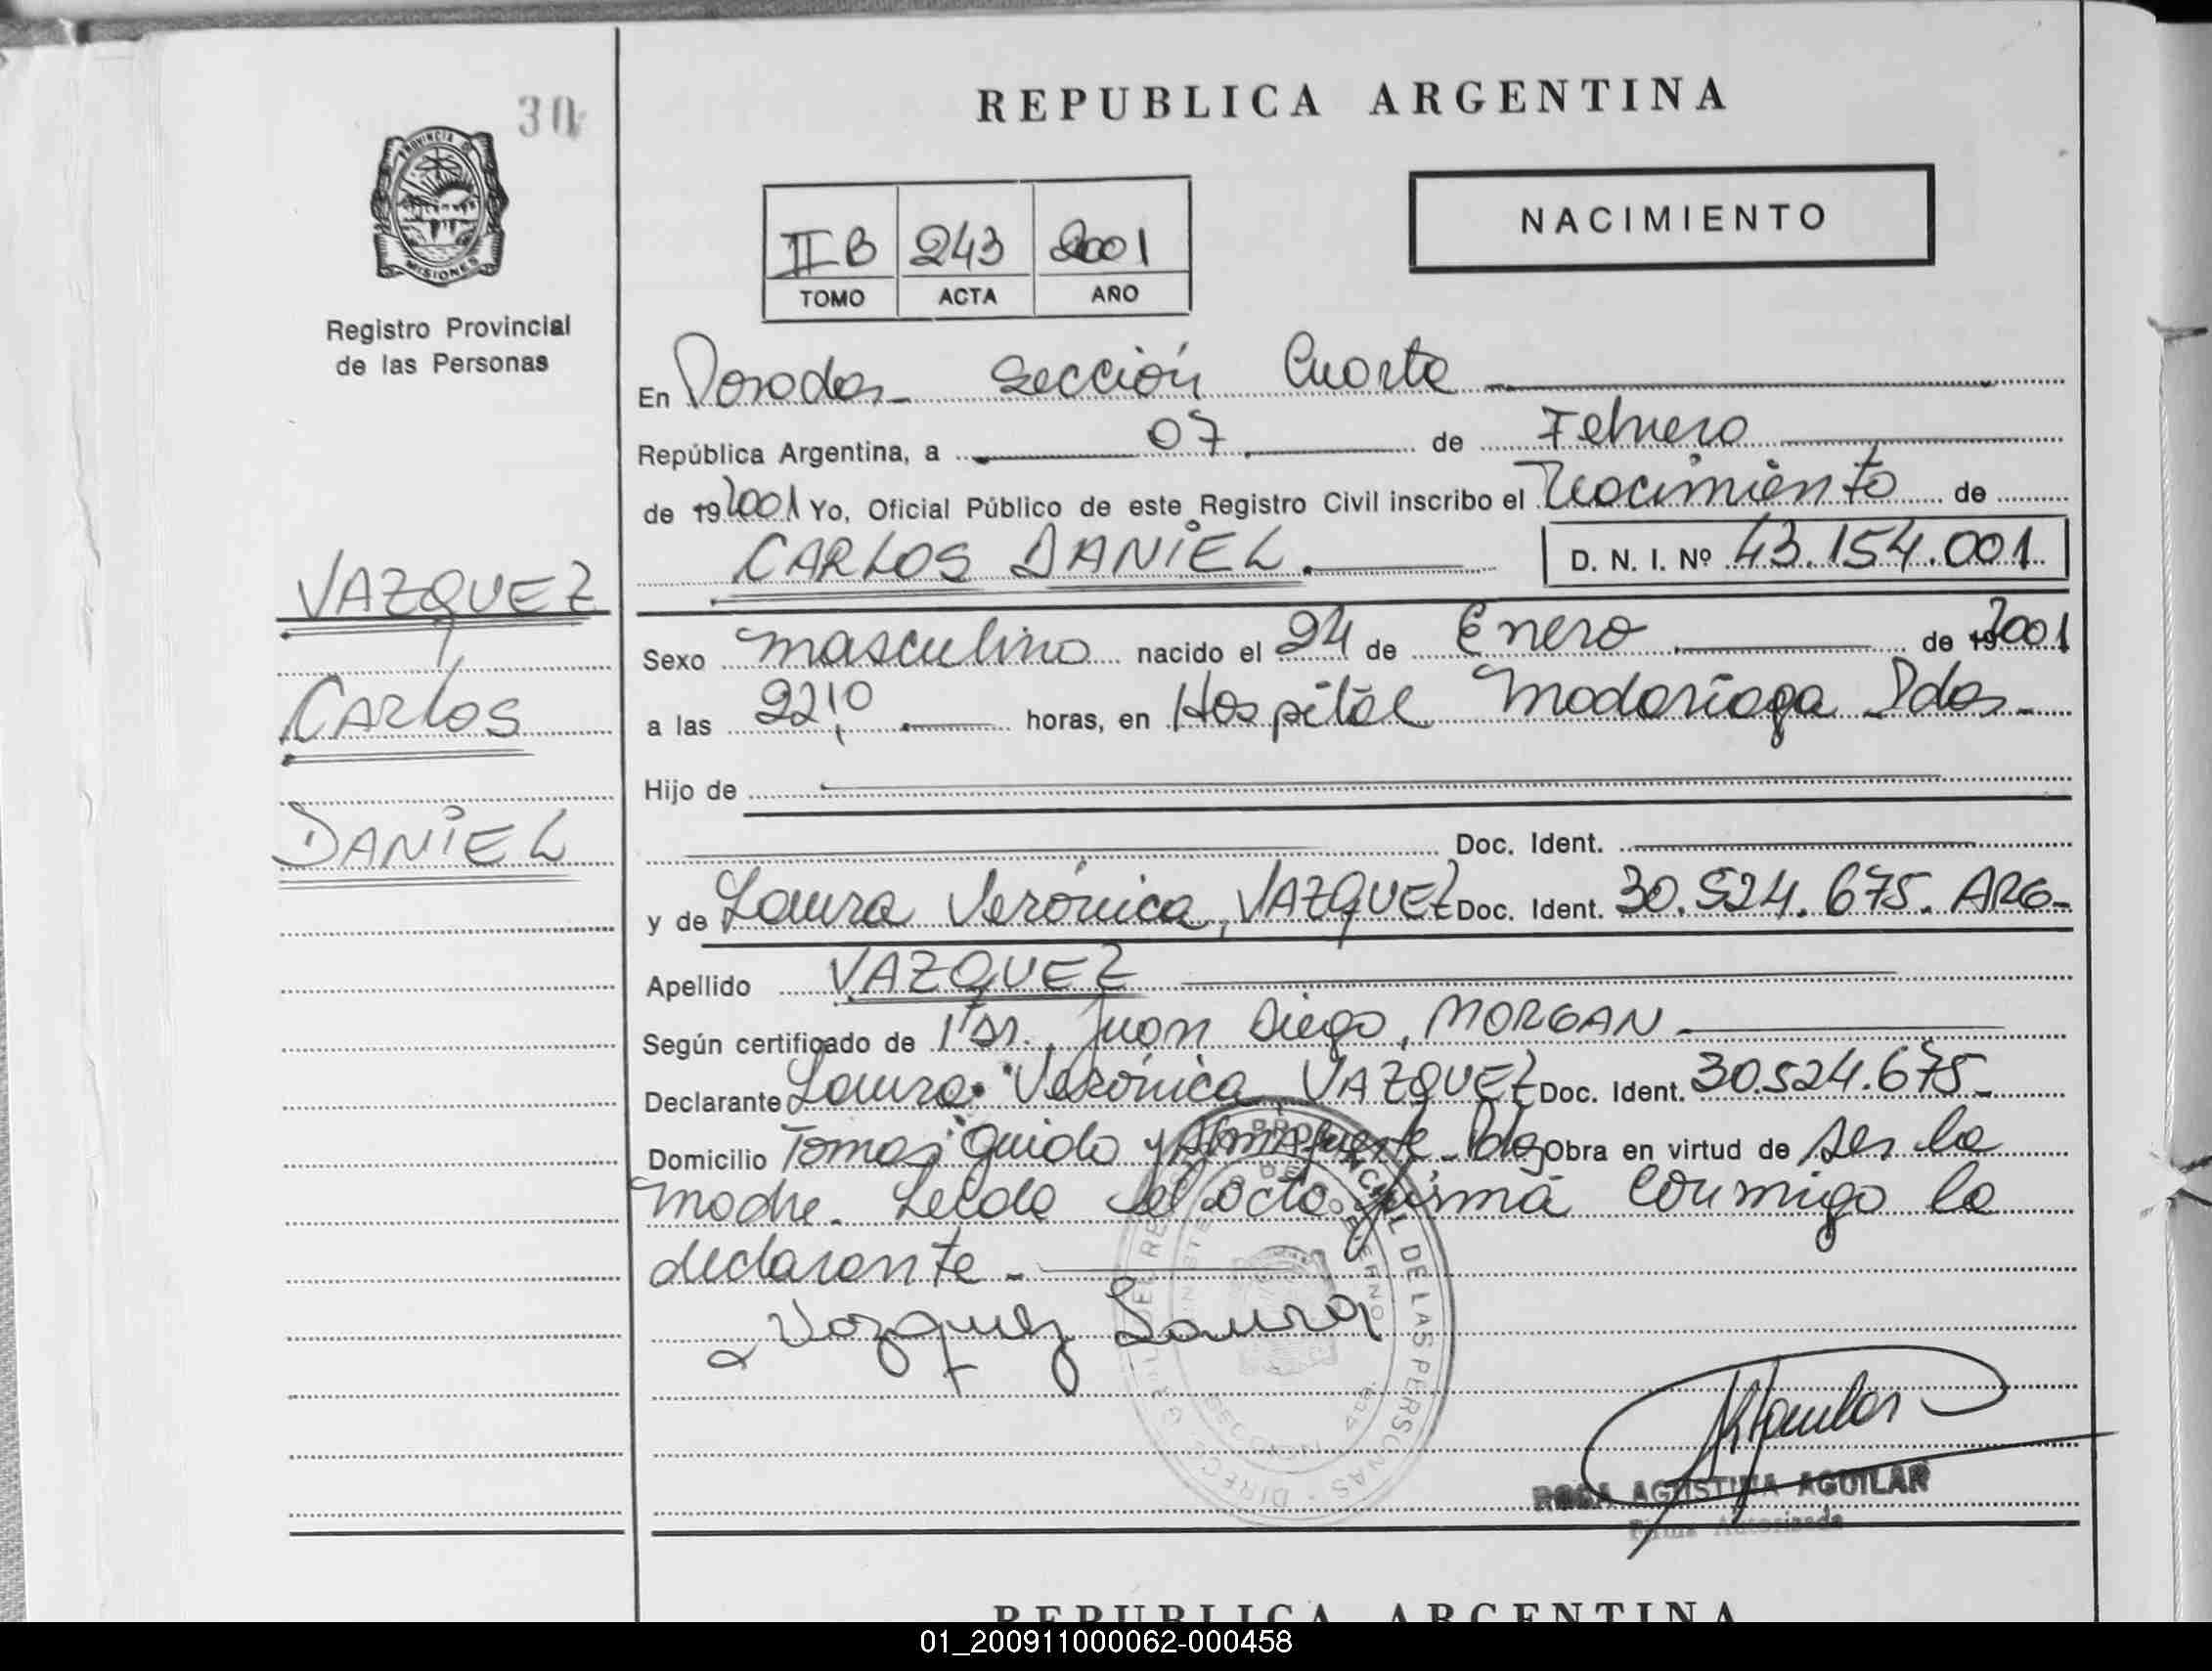 30
PROVINCIA DE
MISIONES
Registro Provincial
de las Personas
VAZQUEZ,
Carlos
DANIEL
REPUBLICA ARGENTINA
IIB 243 2001
TOMO ACTA AÑO
NACIMIENTO
En Posadas - Sección Cuarta
República Argentina, a 07 de Febrero
de 19 2001 Yo, Oficial Público de este Registro Civil inscribo el Nacimiento de
CARLOS DANIEL. D. N. I. Nº 43.154.001
Sexo masculino nacido el 24 de Enero de 19 2001
a las 22,10 horas, en Hospital Madariaga Pdas-
Hijo de
Doc. Ident.
y de Laura Verónica, VAZQUEZ Doc. Ident. 30.524.675. ARG-
Apellido VAZQUEZ
Según certificado de Dr. Juan Diego, MORGAN
Declarante Laura Verónica VAZQUEZ Doc. Ident. 30.524.675-
Domicilio Tomas Guido y Almafuerte - Pdas Obra en virtud de ser la
madre - Leída el acta firma conmigo la
declarante -
Vazquez Laura
ROSA AGUSTINA AGUILAR
Firma Autorizada
REPUBLICA ARGENTINA
01_200911000062-000458